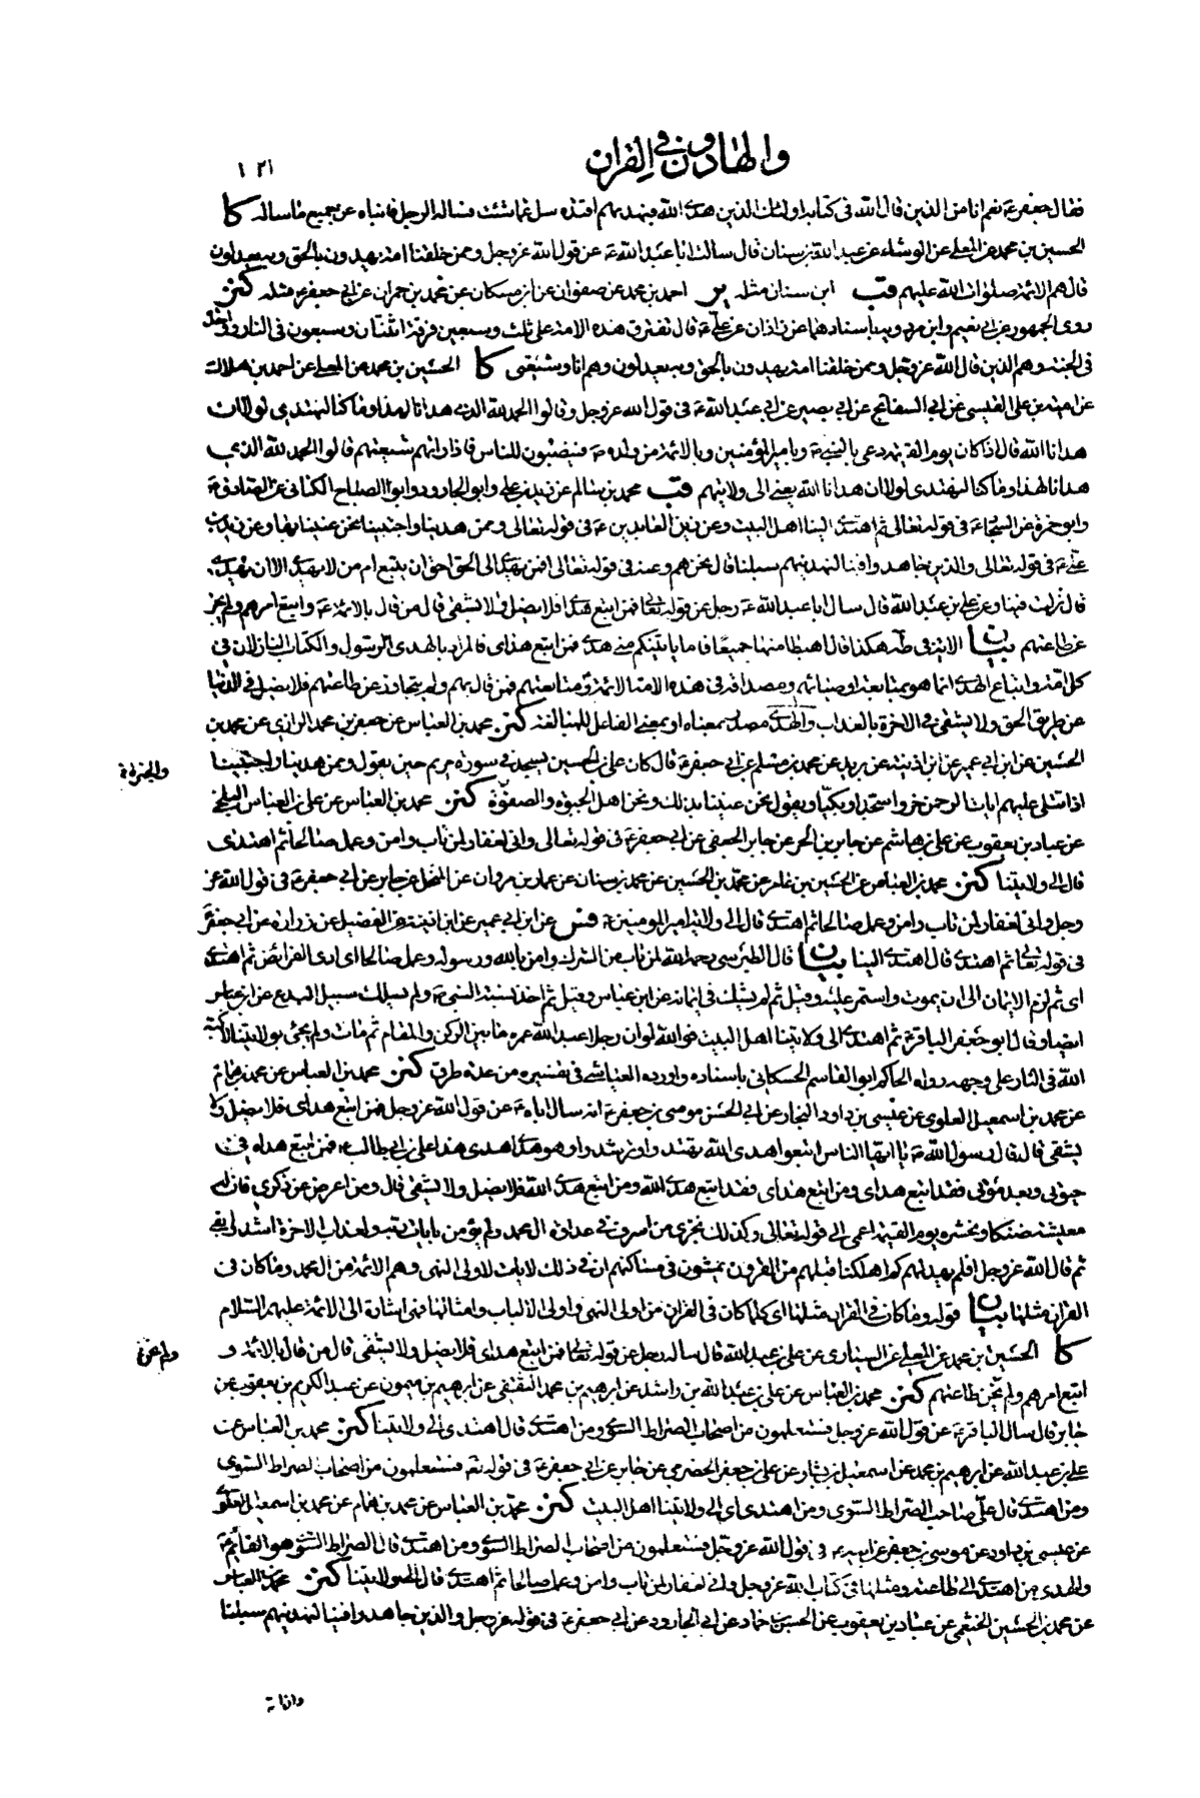 والهادون في القران
١٢١
فقال جعفر ع نعم انا من الذين قال الله في كتابه اولئك الذين هدى الله فبهديهم اقتده سل عما شئت فساله الرجل فانباه عن جميع ما ساله كا
الحسين بن محمد عن المعلى عن الوشاء عن عبد الله بن سنان قال سالت ابا عبد الله ع عن قول الله عز وجل وممن خلقنا امة يهدون بالحق وبه يعدلون
قال هم الائمة صلوات الله عليهم قب ابن سنان مثله ير احمد بن محمد عن صفوان عن ابن مسكان عن محمد بن حمران عن ابي جعفر ع مثله كنز
روى الجمهور عن ابي نعيم وابن مردويه باسنادهما عن زاذان عن علي ع قال تفترق هذه الامة على ثلث وسبعين فرقة اثنتان وسبعون في النار وواحدة
في الجنة وهم الذين قال الله عز وجل وممن خلقنا امة يهدون بالحق وبه يعدلون وهم انا وشيعتي كا الحسين بن محمد عن المعلى عن احمد بن هلال
عن امية بن علي القيسي عن ابي السفاتج عن ابي بصير عن ابي عبد الله ع في قول الله عز وجل وقالوا الحمد لله الذي هدانا لهذا وما كنا لنهتدي لولا ان
هدانا الله قال اذا كان يوم القيمة دعي بالنبي ص وبامير المؤمنين وبالائمة من ولده ع فينصبون للناس فاذا راتهم شيعتهم قالوا الحمد لله الذي
هدانا لهذا وما كنا لنهتدي لولا ان هدانا الله يعني الى ولايتهم قب محمد بن سالم عن زيد بن علي وابو الجارود وابو الصباح الكناني عن الصادق ع
وابو حمزة عن السجاد ع في قوله تعالى ثم اهتدى الينا اهل البيت وعن زين العابدين ع في قوله تعالى وممن هدينا واجتبينا نحن عنينا بها وعن زيد بن
علي ع في قوله تعالى والذين جاهدوا فينا لنهدينهم سبلنا قال نحن هم وعنه في قوله تعالى افمن يهدي الى الحق احق ان يتبع ام من لا يهدي الا ان يهدى
قال نزلت فينا وعن علي بن عبد الله قال سال ابا عبد الله ع رجل عن قوله تعالى فمن اتبع هداي فلا يضل ولا يشقى قال من قال بالائمة ع واتبع امرهم ولم يجز
عن طاعتهم بيان الاية في طه هكذا قال اهبطا منها جميعا فاما ياتينكم مني هدى فمن اتبع هداي فالمراد بالهدى الرسول والكتاب النازلان في
كل امة واتباع الهدى انما هو بمتابعة اوصيائهم ومصداقه في هذه الامة الائمة ومتابعتهم فمن قال بهم ولم يتجاوز عن طاعتهم فلا يضل في الدنيا
عن طريق الحق ولا يشقى في الاخرة بالعذاب والهدى مصدر بمعناه او بمعنى الفاعل للمبالغة كنز محمد بن العباس عن جعفر بن محمد الرازي عن محمد بن
الحسين عن ابن ابي عمير عن ابن اذينة عن بريد عن محمد بن مسلم عن ابي جعفر ع قال كان علي بن الحسين يسجد في سورة مريم حين يقول وممن هدينا واجتبينا
والحبوة خ
اذا تتلى عليهم ايات الرحمن خروا سجدا وبكيا ويقول نحن عنينا بذلك ونحن اهل الجبوة والصفوة كنز محمد بن العباس عن علي بن العباس البجلي
عن عباد بن يعقوب عن علي بن هاشم عن جابر بن الحر عن جابر الجعفي عن ابي جعفر ع في قوله تعالى واني لغفار لمن تاب وامن وعمل صالحا ثم اهتدى
قال الى ولايتنا كنز محمد بن العباس عن الحسين بن عامر عن محمد بن الحسين عن محمد بن سنان عن عمار بن مروان عن المنخل عن جابر عن ابي جعفر ع في قول الله عز
وجل واني لغفار لمن تاب وامن وعمل صالحا ثم اهتدى قال الى ولاية امير المومنين ع فس عن ابن ابي عمير عن ابن اذينة عن الفضيل عن زرارة عن ابي جعفر ع
في قوله تعالى ثم اهتدى قال اهتدى الينا بيان قال الطبرسي رحمه الله لمن تاب من الشرك وامن بالله ورسوله وعمل صالحا اي ادى الفرائض ثم اهتدى
اي ثم لزم الايمان الى ان يموت واستمر عليه وقيل ثم لم يشك في ايمانه عن ابن عباس وقيل ثم اخذ بسنة النبي ص ولم يسلك سبيل البدع عن ابن عباس
ايضا وقال ابو جعفر الباقر ع ثم اهتدى الى ولايتنا اهل البيت فوالله لو ان رجلا عبد الله عمره ما بين الركن والمقام ثم مات ولم يجئ بولايتنا لاكبه
الله في النار على وجهه رواه الحاكم ابو القاسم الحسكاني باسناده واورده العياشي في تفسيره من عدة طرق كنز محمد بن العباس عن محمد بن همام
عن محمد بن اسمعيل العلوي عن عيسى بن داود النجار عن ابي الحسن موسى بن جعفر ع انه سال اباه ع عن قول الله عز وجل فمن اتبع هداي فلا يضل ولا
يشقى قال قال رسول الله ص يا ايها الناس اتبعوا هدى الله تهتدوا وترشدوا وهو هداي وهداي هدى علي بن ابي طالب ع فمن اتبع هداه في
حيوتي وبعد موتي فقد اتبع هداي ومن اتبع هداي فقد اتبع هدى الله ومن اتبع هدى الله فلا يضل ولا يشقى قال ومن اعرض عن ذكري فان له
معيشة ضنكا ونحشره يوم القيمة اعمى الى قوله تعالى وكذلك نجزي من اسرف في عداوة ال محمد ولم يؤمن بايات ربه ولعذاب الاخرة اشد وابقى
ثم قال الله عز وجل افلم يهد لهم كم اهلكنا قبلهم من القرون يمشون في مساكنهم ان في ذلك لايات لاولي النهى وهم الائمة من ال محمد وما كان في
القران مثلها بيان قوله وما كان في القران مثلها اي كلما كان في القران من اولي النهى واولي الالباب وامثالها فهي اشارة الى الائمة عليهم السلام
كا الحسين بن محمد عن المعلى عن السياري عن علي بن عبد الله قال ساله رجل عن قوله تعالى فمن اتبع هداي فلا يضل ولا يشقى قال من قال بالائمة و
اتبع امرهم ولم يجز طاعتهم كنز محمد بن العباس عن علي بن عبد الله بن راشد عن ابرهيم بن محمد الثقفي عن ابرهيم بن ميمون عن عبد الكريم بن يعقوب عن
جابر قال سال الباقر ع عن قول الله عز وجل فستعلمون من اصحاب الصراط السوي ومن اهتدى قال اهتدى الى ولايتنا كنز محمد بن العباس عن
علي بن عبد الله عن ابرهيم بن محمد عن اسمعيل بن بشار عن علي بن جعفر الحضرمي عن جابر عن ابي جعفر ع في قوله تعالى فستعلمون من اصحاب الصراط السوي
ومن اهتدى قال علي صاحب الصراط السوي ومن اهتدى اي الى ولايتنا اهل البيت كنز محمد بن العباس عن محمد بن همام عن محمد بن اسمعيل العلوي
عن عيسى بن داود عن موسى بن جعفر عن ابيه ع في قول الله عز وجل فستعلمون من اصحاب الصراط السوي ومن اهتدى قال الصراط السوي هو القائم ع
والهدى من اهتدى الى طاعته ومثلها في كتاب الله عز وجل واني لغفار لمن تاب وامن وعمل صالحا ثم اهتدى قال الى ولايتنا كنز محمد بن العباس
عن محمد بن الحسين الخثعمي عن عباد بن يعقوب عن الحسن بن حماد عن ابي الجارود عن ابي جعفر ع في قوله عز وجل والذين جاهدوا فينا لنهدينهم سبلنا